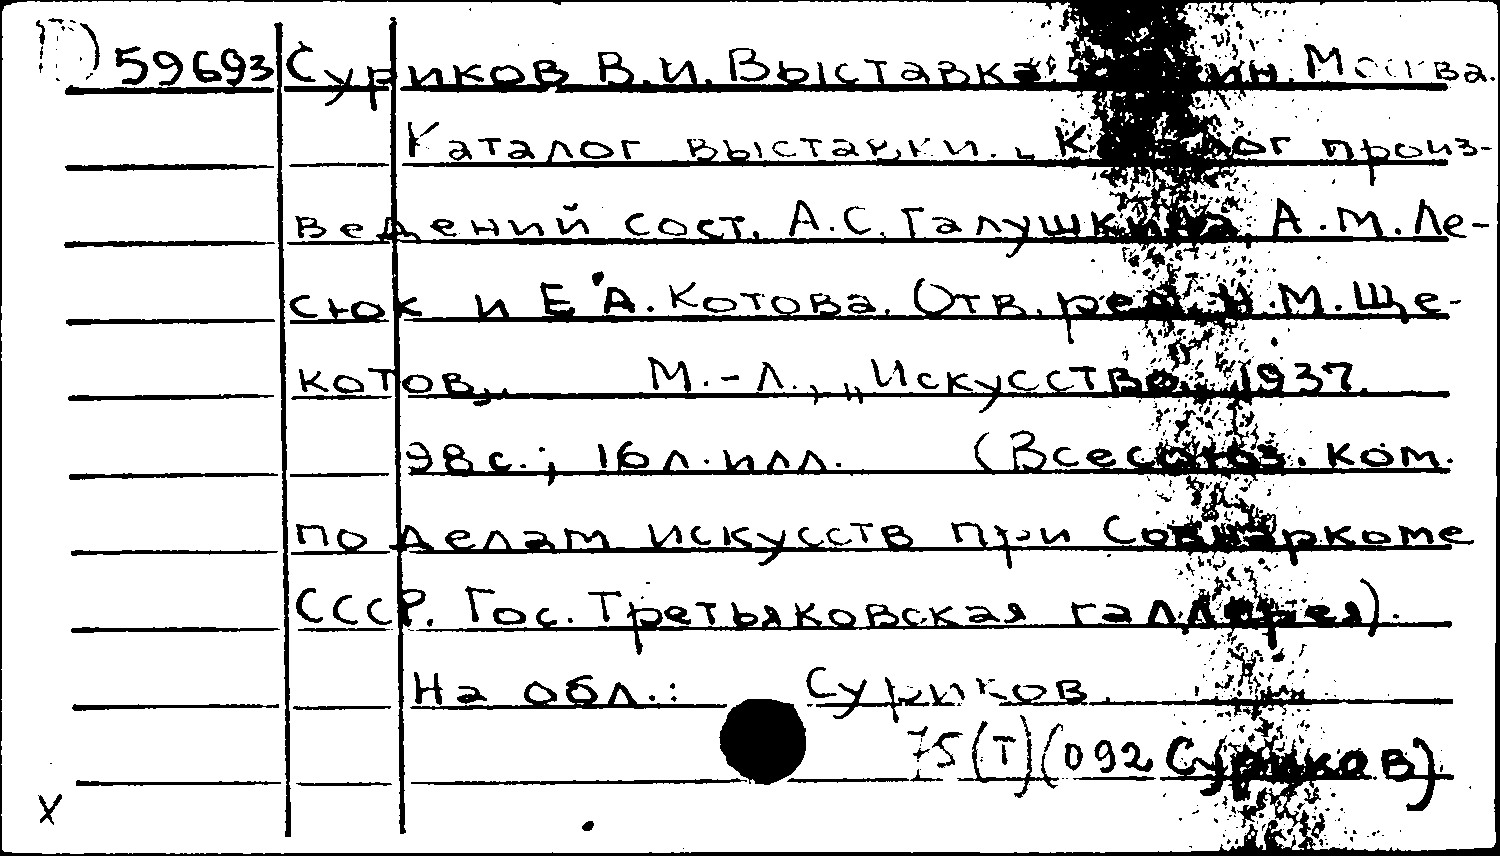 59693 Суриков В.И. Выставка. Москва.
Каталог выставки. „Каталог произ-
ведений сост. А.С. Галушкина, А.М. Ле-
сюк и Е.А. Котова. Отв. ред. Н.М. Ще-
котов„. М.-Л., „Искусство„, 1937.
98 с.; 16 л. илл. (Всесоюз. ком.
по делам искусств при Совнаркоме
СССР. Гос. Третьяковская галлерея).
На обл.: Суриков.
75(Т)(092 Суриков)
х